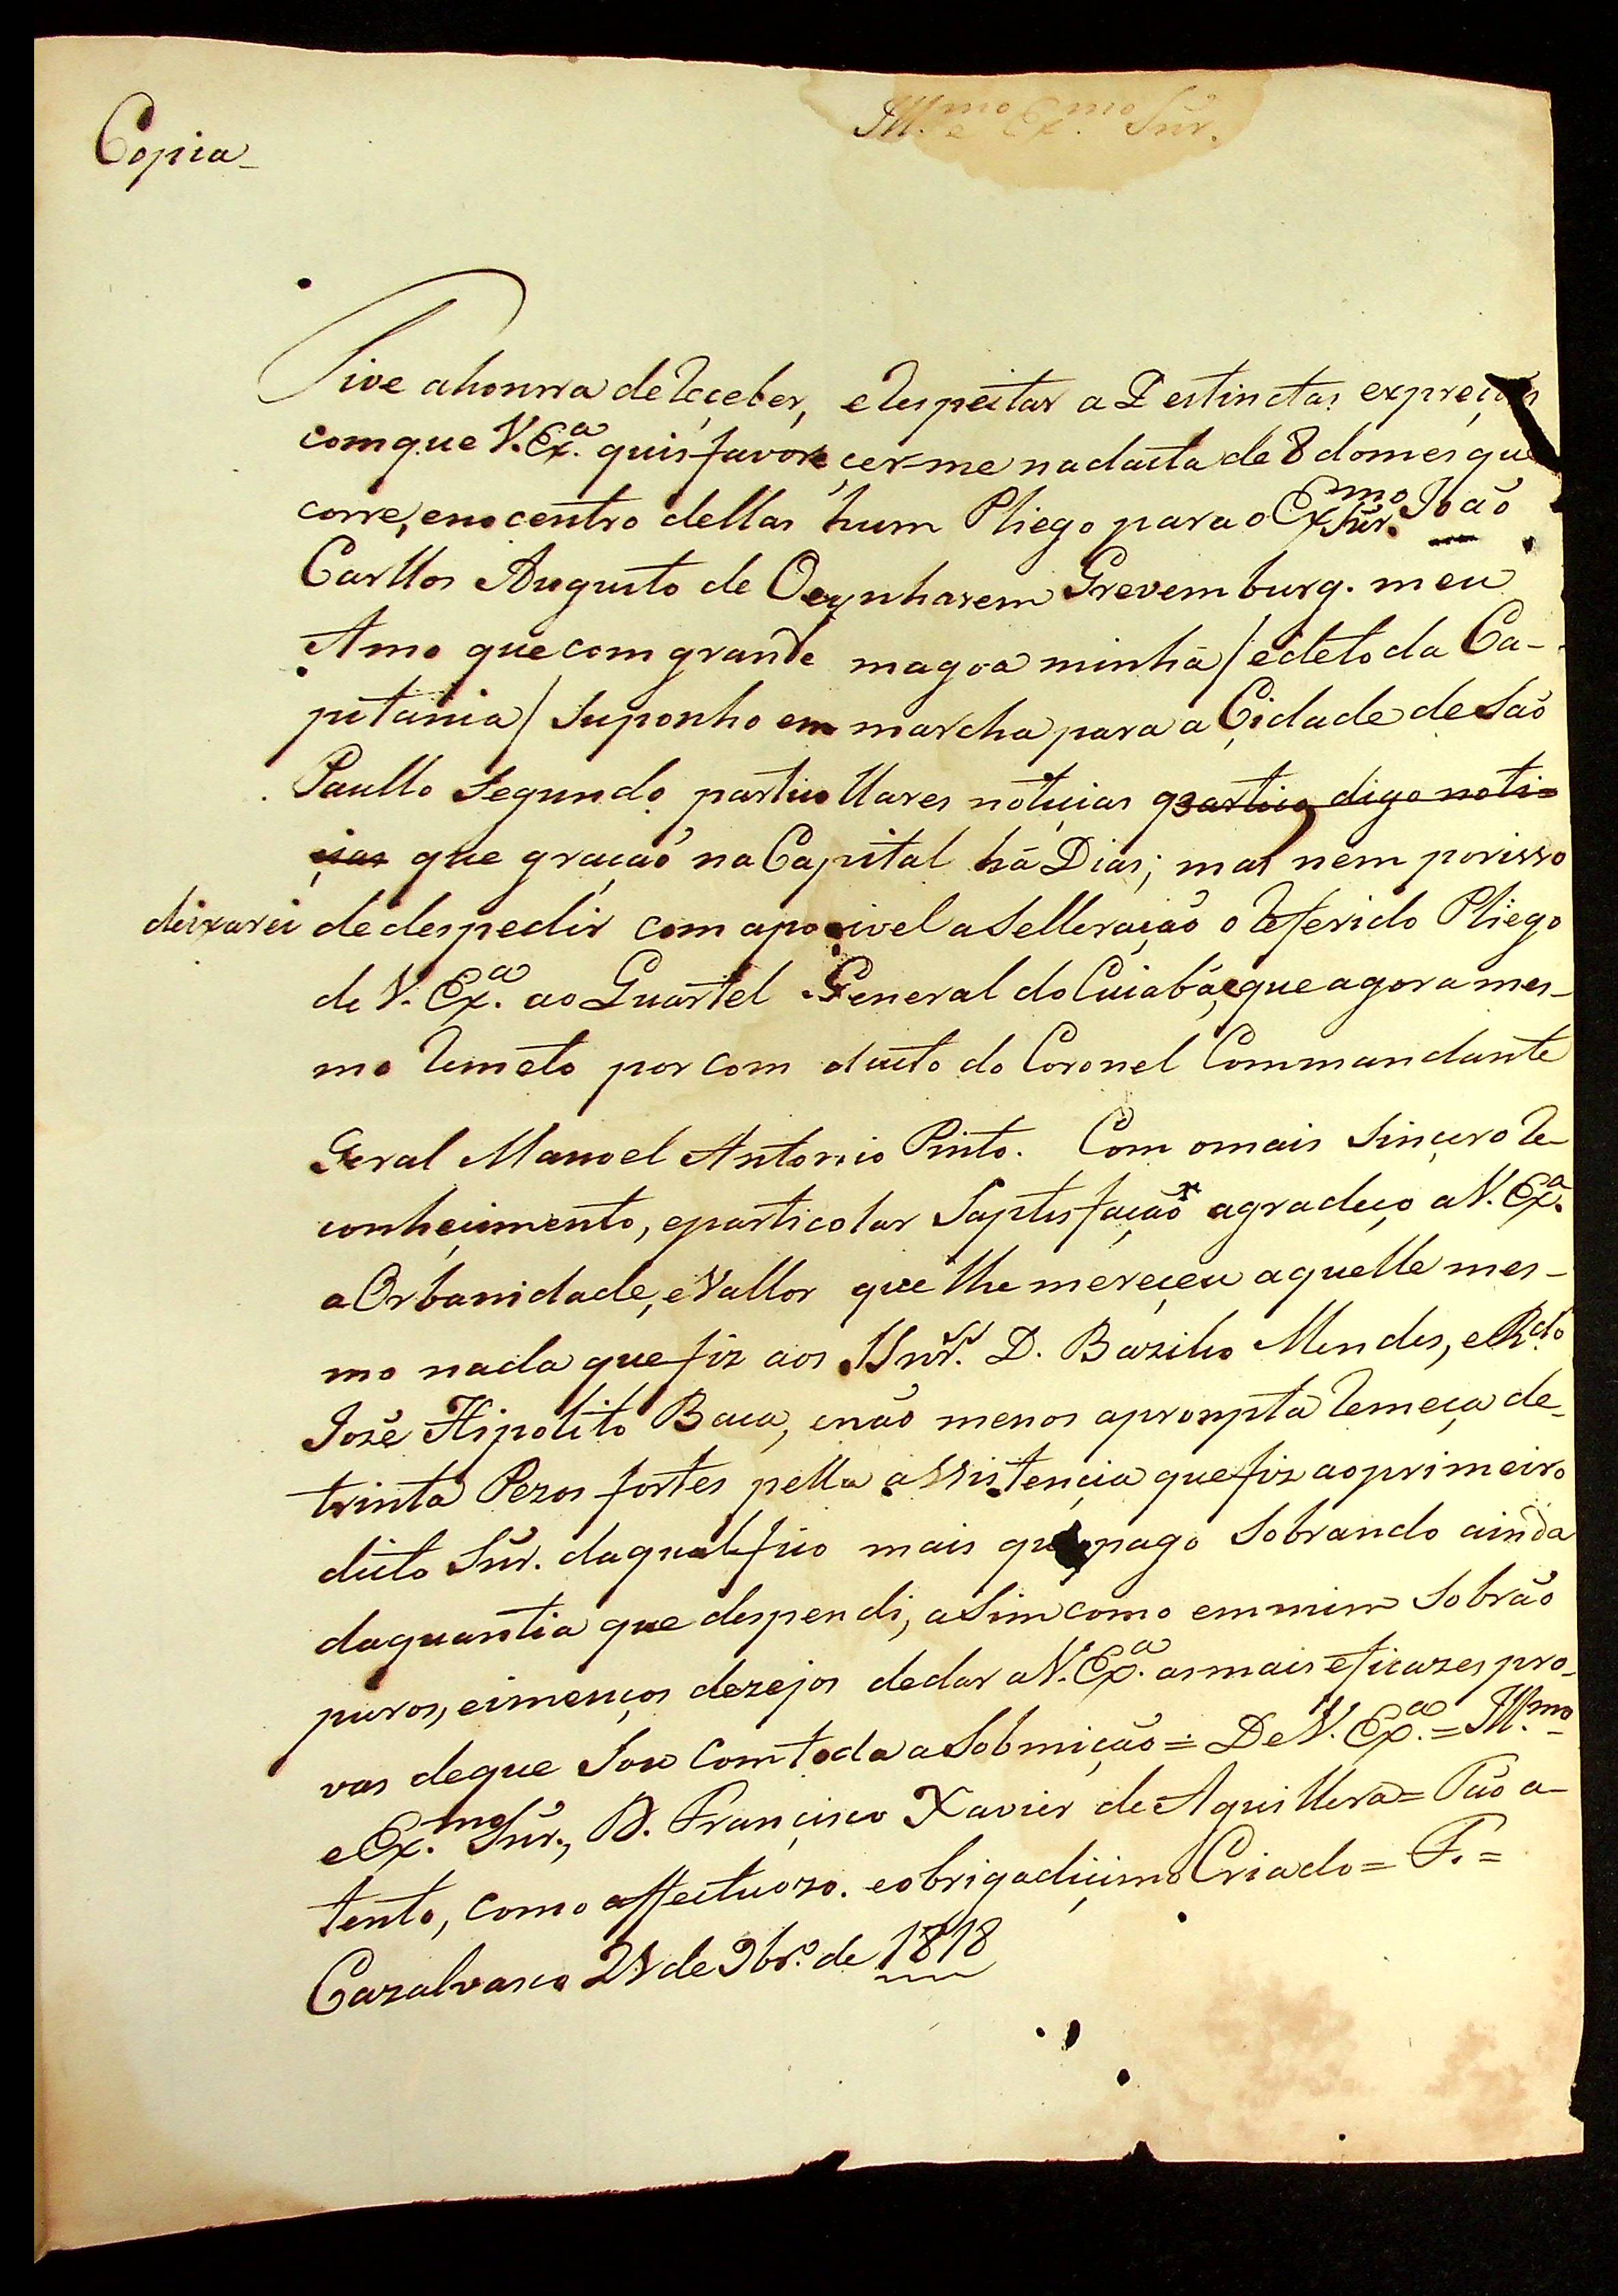 Copia
Ill.mo e Ex.mo Snr.
Tive ahonrra deReçeber, eRespeitar a Destinctas expreçoes
comque V. Ex.a quis favoreçer-me nadacta de 8 domes que
corre, enocentro dellas hum Pliego para o Ex.mo Snr. João
Carllos Augusto de Oeynharem Grevemburg. meu
Amo que com grande magoa minha / edetoda Ca-
pitania / Suponho em marcha para a Çidade de São
Paullo Segundo particollares notiçias q partico digo noti-
çias que graçaõ na Capital há Dias; mas nem porisso
deixarei dedespedir com apocivel aSelleração o Referido Pliego
de V. Ex.a ao Guartel General do Cuiabá, que agora mes-
mo Remeto por com ducto do Coronel Commandante
Geral Manoel Antonio Pinto. Com omais Sinçero Re-
conheçimento, eparticolar Saptisfação agradeço a V. Ex.a
a Orbanidade, eVallor que lhe mereçeu aquelle mes-
mo nada que fiz aos Snr.s D. Bazilio Mendes, e R.do
José Hipolito Baca, enão menos aprompta Remeça de
trinta Pezos fortes pella aSsistençia que fiz aoprimeiro
dicto Snr. daqual fico mais que pago Sobrando ainda
daquantia que despendi, aSim como em mim Sobrão
puros, eimenços dezejos dedar a V. Ex.a as mais eficazes pro-
vas deque Sou Com toda a Sobmição = De V. Ex.a = Ill.mo
e Ex.mo Snr., D. Françisco Xavier de Aguillera = Tão a-
tento, como affectuozo. eobrigadiçimo Criado = F. =
Cazalvasco 21 de 9br.o de 1818